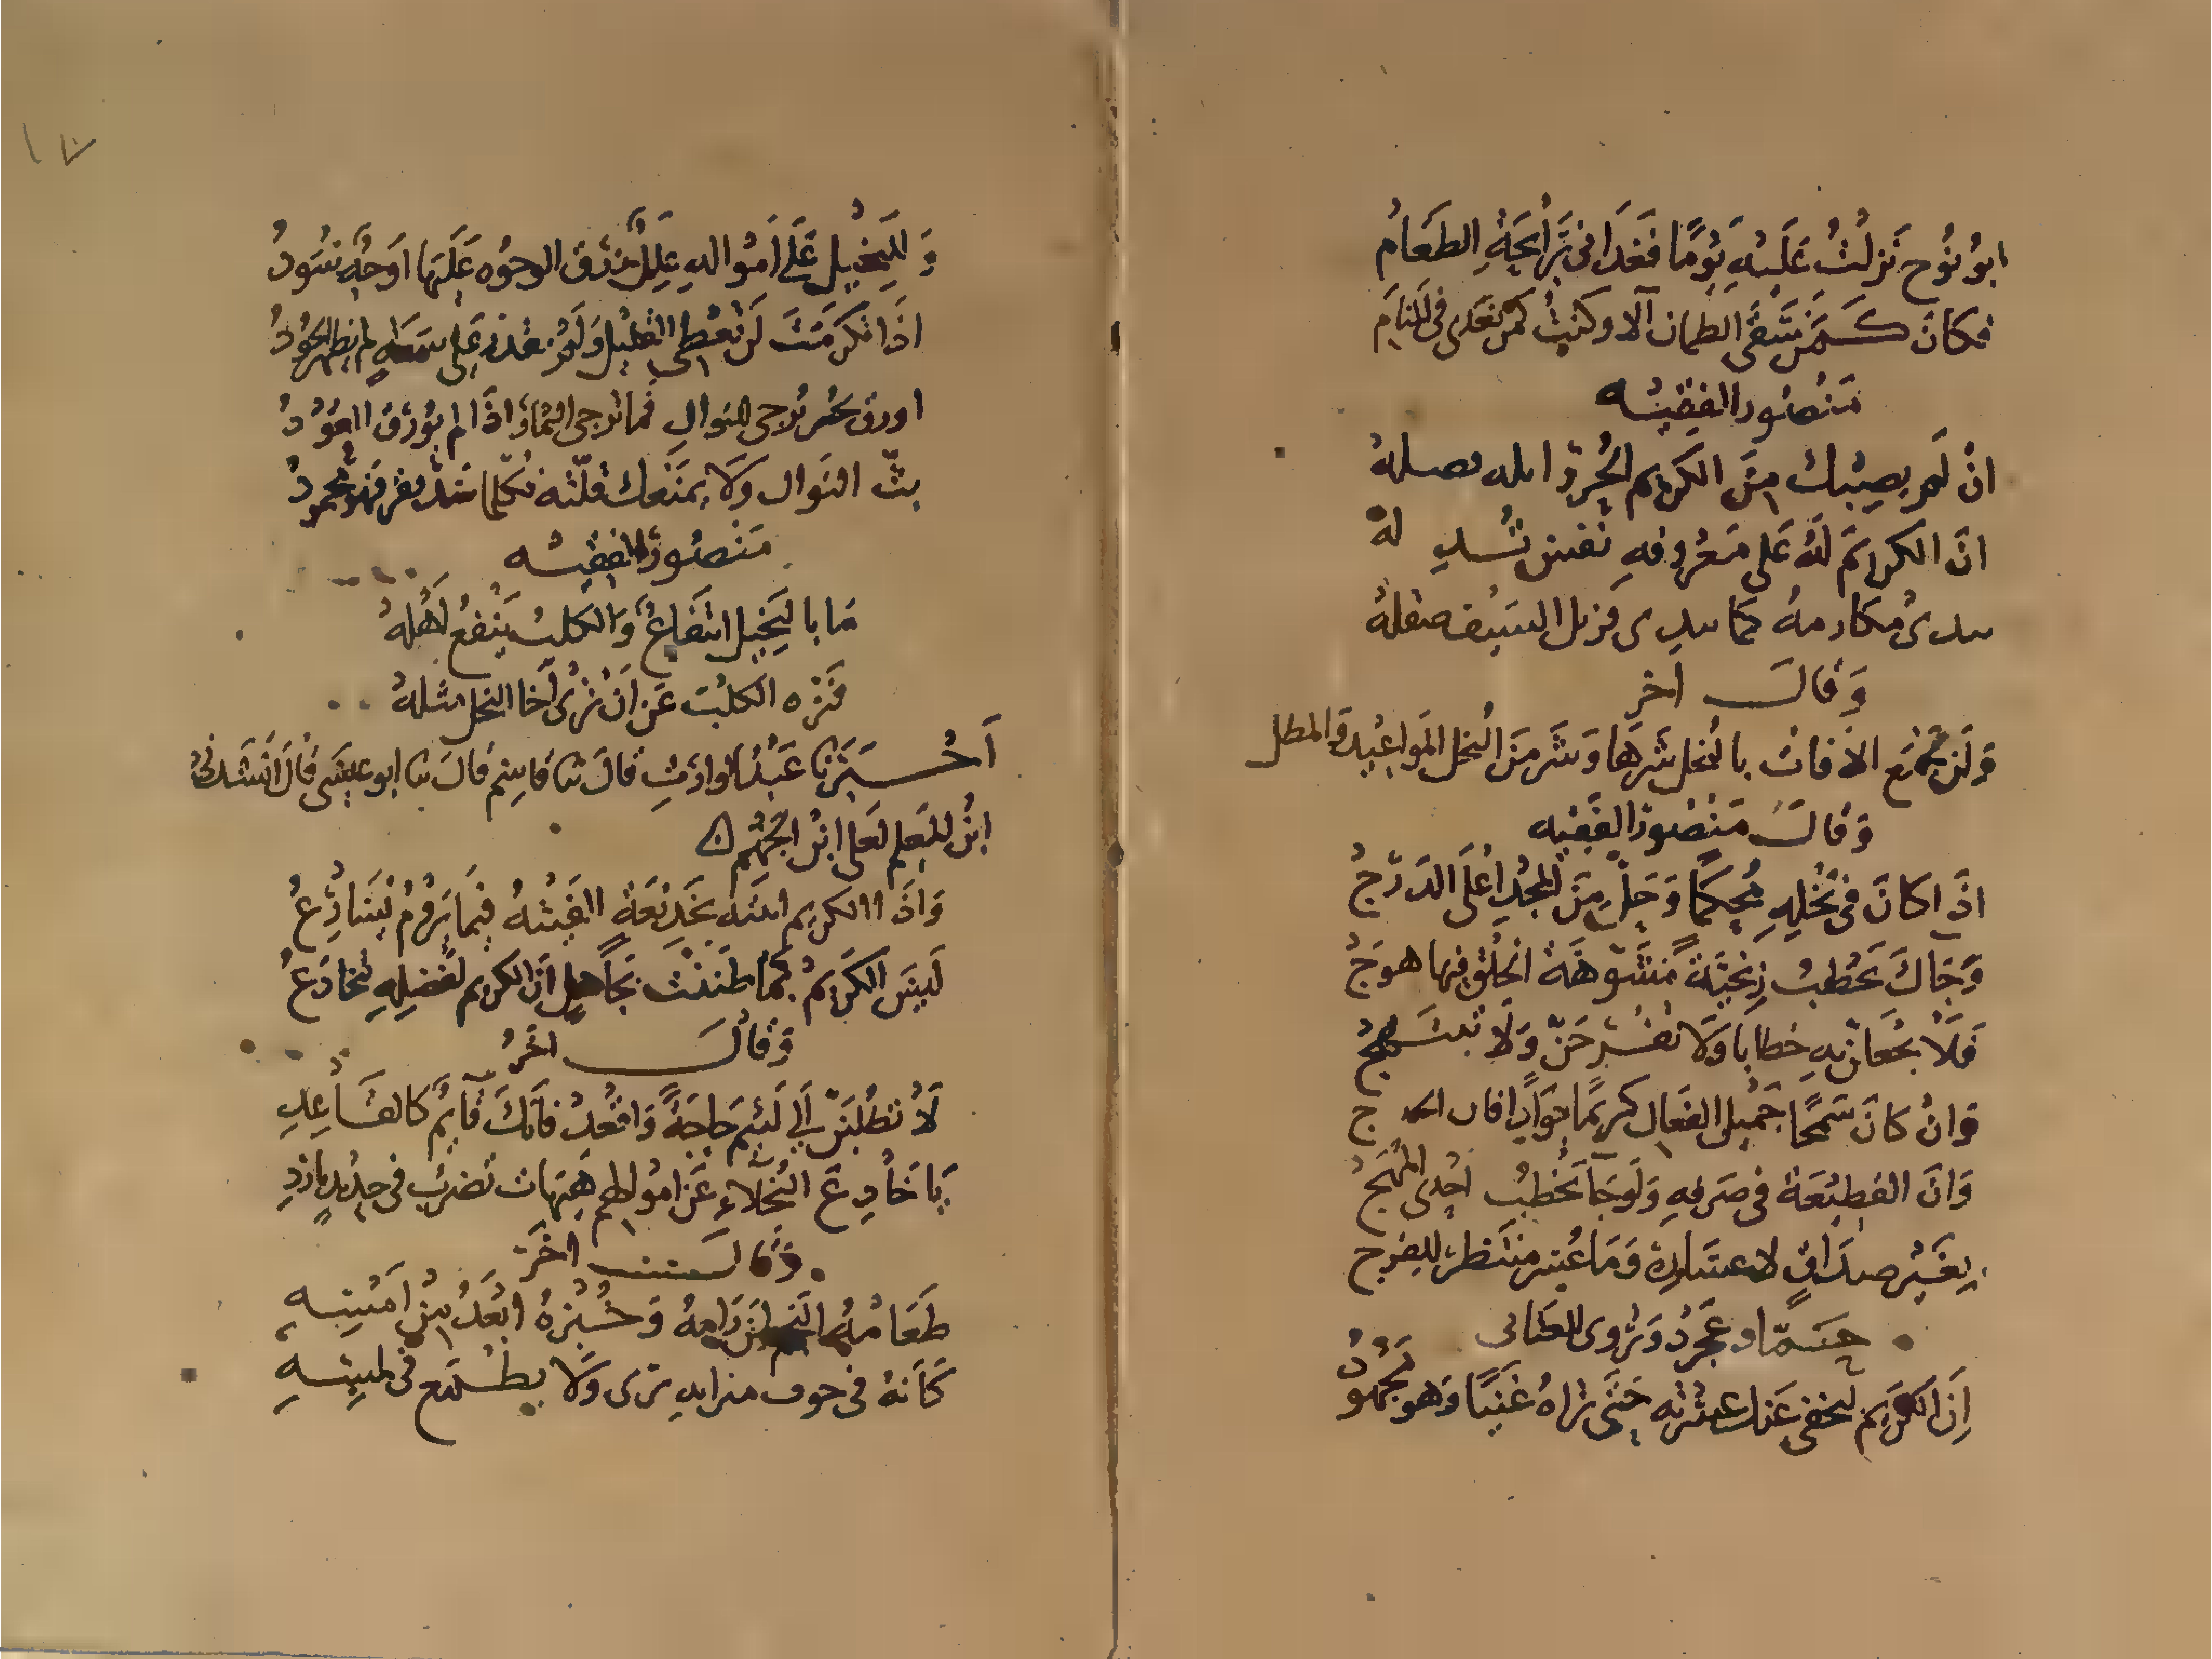 ابو نوح نزلت عليه يوما فغداني برائحة الطعام
فكان كمن سقى الظمان آلا وكنت كمن تغدى في المنام
منصور الفقيه
ان لم يصبك من الكريم الحر وابله فطله
ان الكريم له على معروفه نفس تدله
يبدي مكارمه كما يبدي فرند السيف صقله
وقال اخر
ولن تجمع الافات بالبخل شرها وشر من البخل المواعيد والمطل
وقال منصور الفقيه
اذا كان في بخله محكما وحل من المجد اعلى الدرج
وجاك يخطب زنجية مشوهة الخلق فيها هوج
فلا خطابا ولا ولا تبتهج
وان كان سمحا جميل الفعال كريما جوادا
وان القطيعة في صرفه ولو جا يخطب احدى المهج
بغير صداق لاعساره وما عسر منتظر للفرج
حماد عجرد وتروى للعتابي
ان الكريم ليخفي عنك عسرته حتى تراه غنيا وهو مجهود
١٧
وللبخيل على امواله علل زرق الوجوه عليها اوجه سود
اذا تكرمت ان تعطي القليل ولم تقدر على سعة لم يظهر الجود
اورق بخير ترجى للنوال فما ترجى الثمار اذا لم يورق العود
بث النوال ولا يمنعك قلته فكلما سد فقرا فهو محمود
منصور الفقيه
ما بالبخيل انتفاع والكلب ينفع اهله
فنزه الكلب عن ان ترى اخا البخل مثله
اخبرنا عبد الوارث قال نا قاسم قال نا ابو عيسى قال انشدني
ابن المعلم لعلي ابن الجهم
واذا الكريم اتيته بخديعة الفيته فيما تروم يسارع
ليس الكريم كما ظننت بجاهل ان الكريم لفضله يتخادع
وقال اخر
لا تطلبن الى لئيم حاجة واقعد فانك قايم كالقاعد
يا خادع البخلاء عن اموالهم هيهات تضرب في حديد بارد
وقال اخر
طعامه النجم لمن رامه وخبزه ابعد من امسه
كانه في جوف مرايه يرى ولا يطمع في لمسه